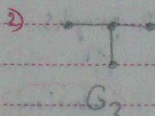 2)
G₂